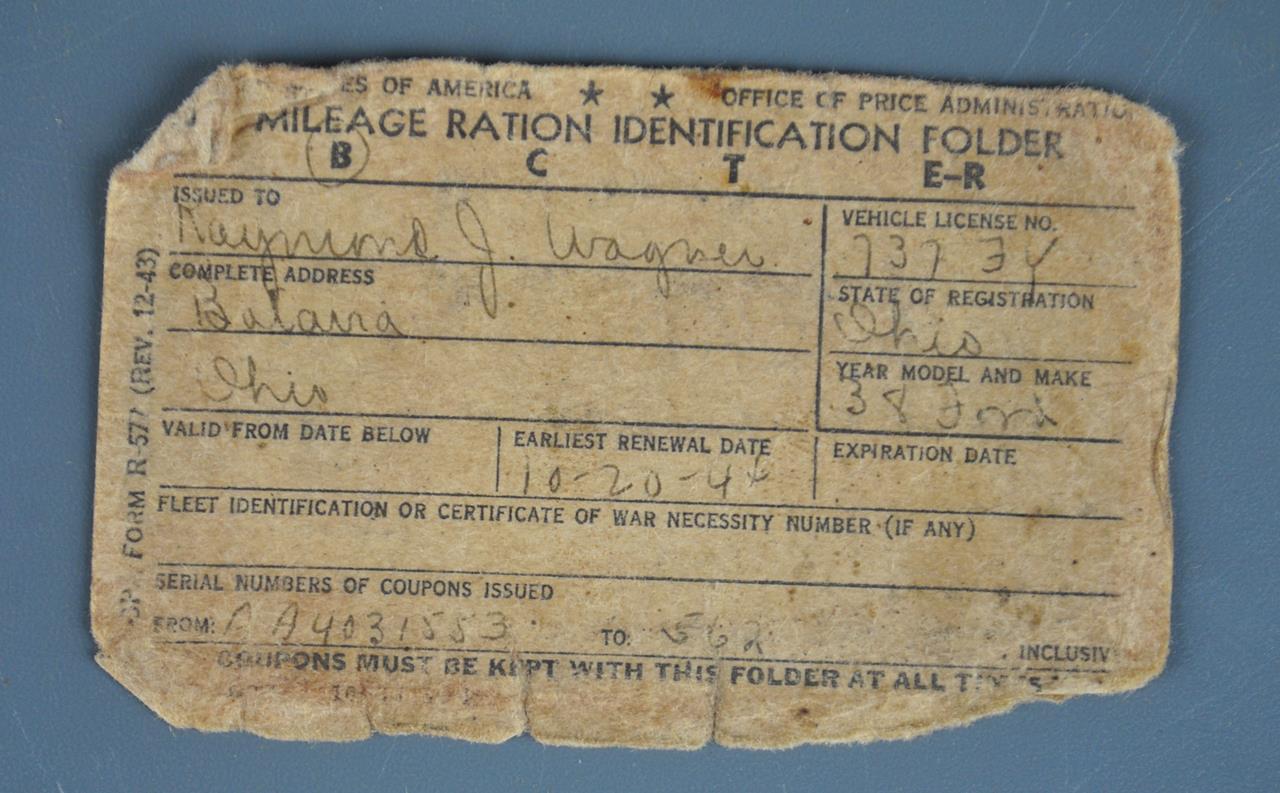 ES OF AMERICA ★ ★ OFFICE OF PRICE ADMINISTRATIO
MILEAGE RATION IDENTIFICATION FOLDER
B C T E-R
ISSUED TO
Raymond J. Wagner
VEHICLE LICENSE NO.
737 JY
COMPLETE ADDRESS
Batavia
STATE OF REGISTRATION
Ohio
Ohio
YEAR MODEL AND MAKE
38 Ford
VALID FROM DATE BELOW
EARLIEST RENEWAL DATE
10-20-44
EXPIRATION DATE
FLEET IDENTIFICATION OR CERTIFICATE OF WAR NECESSITY NUMBER (IF ANY)
SERIAL NUMBERS OF COUPONS ISSUED
FROM: AA4031553 TO: 562 INCLUSIV
COUPONS MUST BE KEPT WITH THIS FOLDER AT ALL TIMES
FORM R-577 (REV. 12-43)